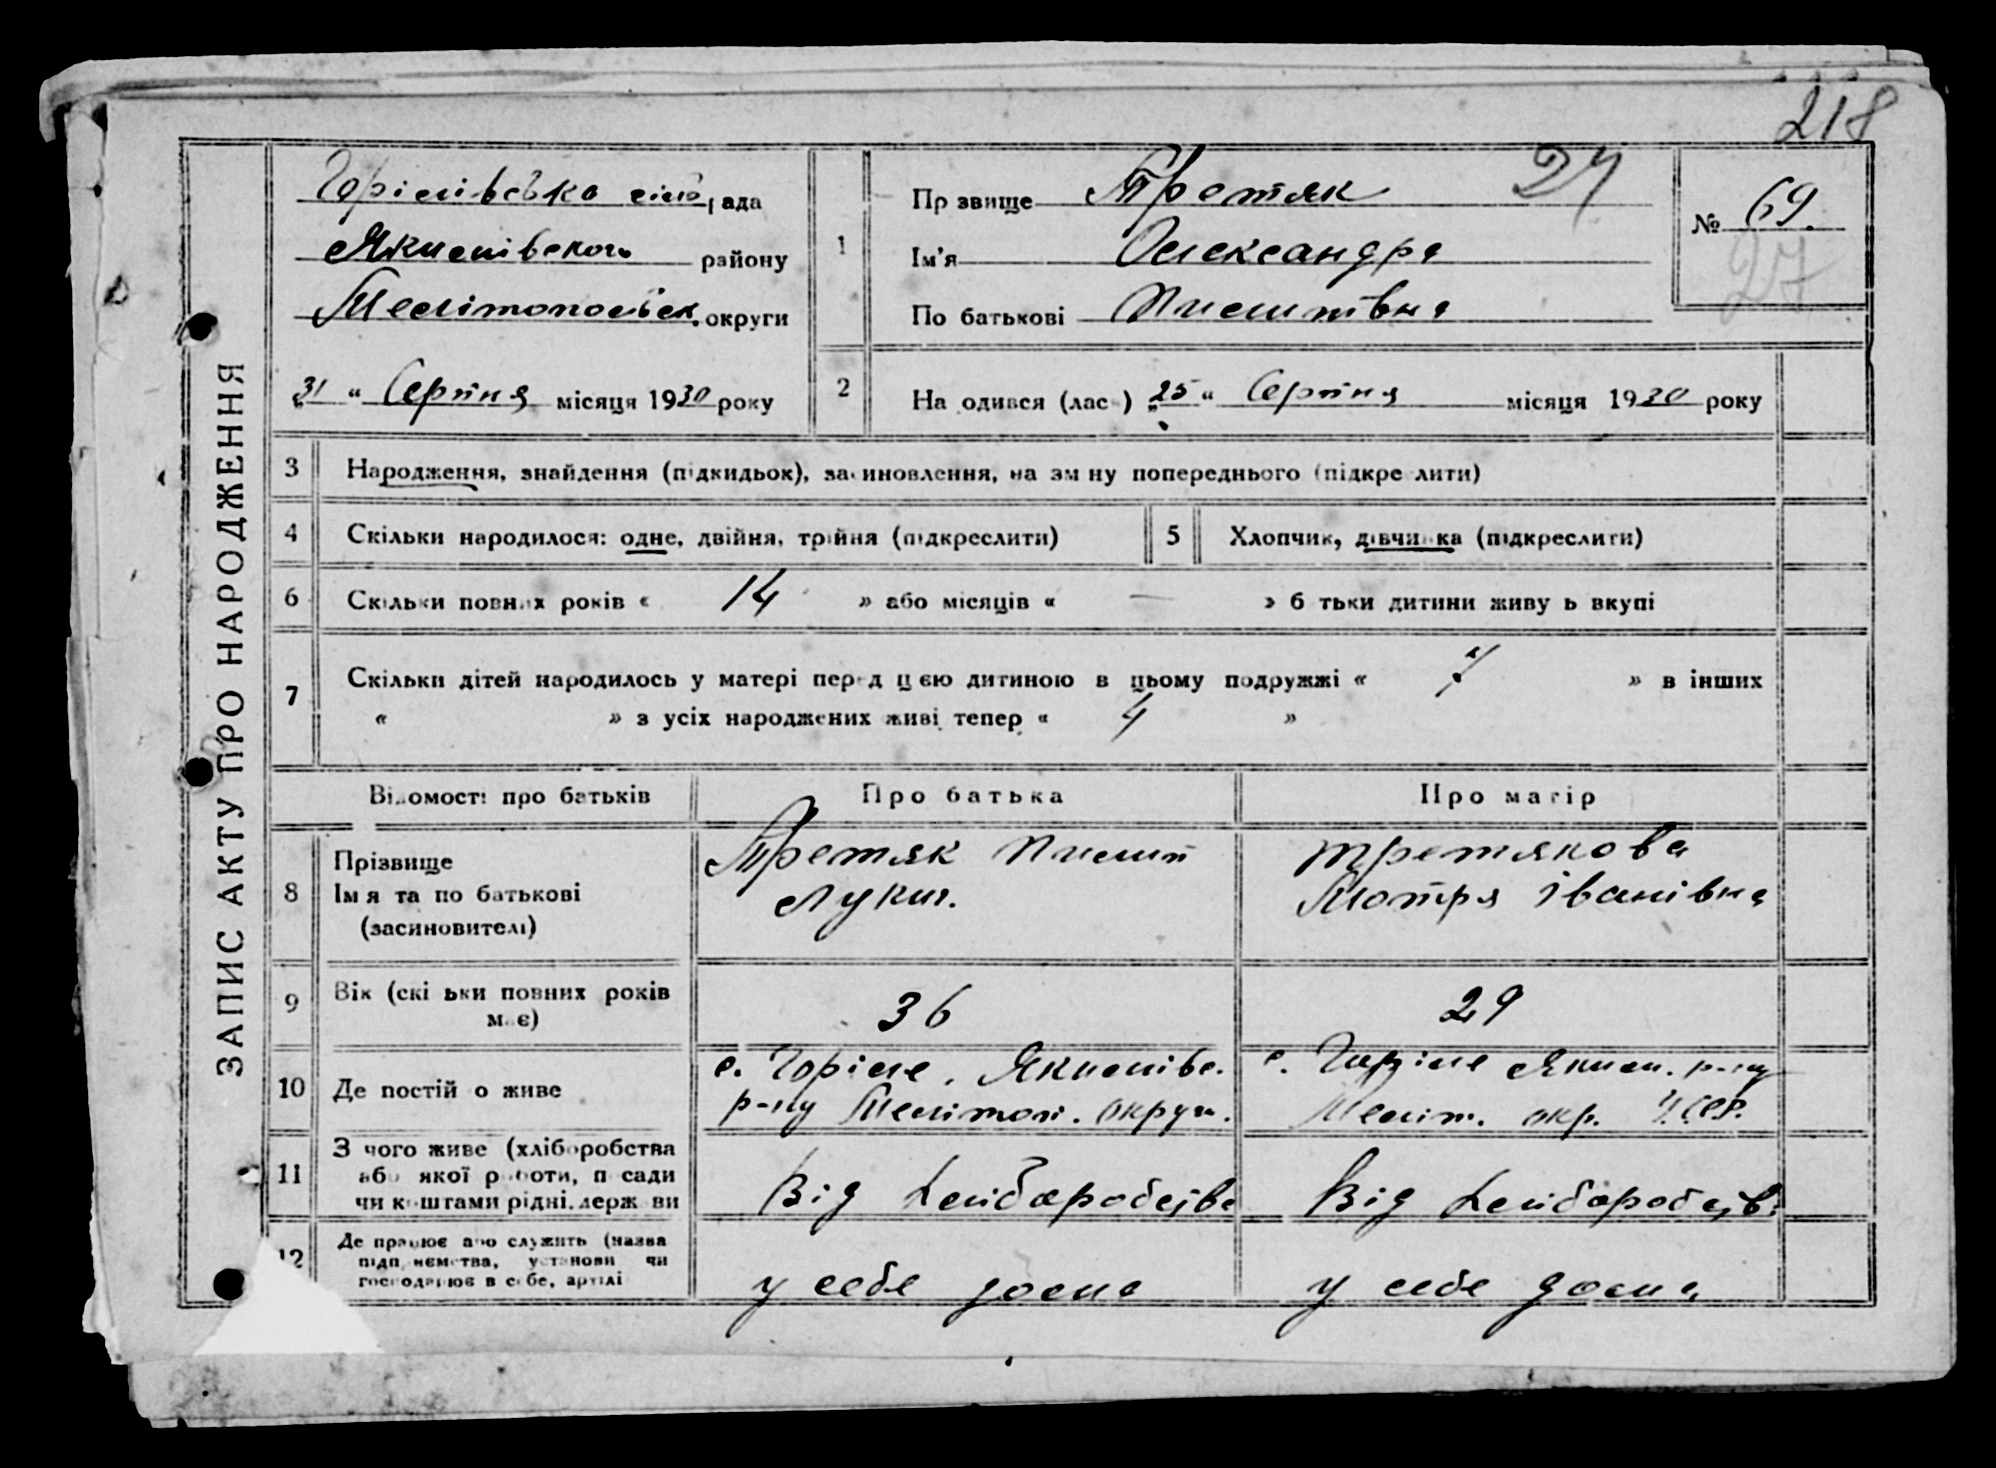 218
ЗАПИС АКТУ ПРО НАРОДЖЕННЯ
Горілівська сіль рада
Якимівського району
Мелітопольськ. округи
„31“ Серпня місяця 1930 року
1
Пр звище Третяк 27
Ім'я Олександра
По батькові Пилипівна
№ 69.
27
2
На одився (лас ) „25“ Серпня місяця 1930 року
3 Народження, знайдення (підкидьок), засиновлення, на зм ну попереднього (підкре лити)
4 Скільки народилося: одне, двійня, трійня (підкреслити)
5 Хлопчик, дівчинка (підкреслити)
6 Скільки повних років « 14 » або місяців « — » б тьки дитини живу ь вкупі
7 Скільки дітей народилось у матері перед цією дитиною в цьому подружжі « 7 » в інших
« » з усіх народжених живі тепер « 4 »
Відомості про батьків Про батька Про матір
8 Прізвище
Ім я та по батькові
(засиновителі)
Третяк Пилип
Лукич.
Третякова
Мотря Іванівна
9 Вік (скі ьки повних років
має)
36
29
10 Де постій о живе
с. Горіле, Якимівс.
р-ну Мелітоп. округи.
с. Горіле Яким. р-ну
Меліт. окр. УСРР.
11 З чого живе (хліборобства
або якої роботи, посади
чи коштами рідні, держ ви
Від Хліборобства
Від Хліборобств.
12 Де працює або служить (назва
підприємства, установи чи
господарює в себе, артілі
у себе дома
у себе дома